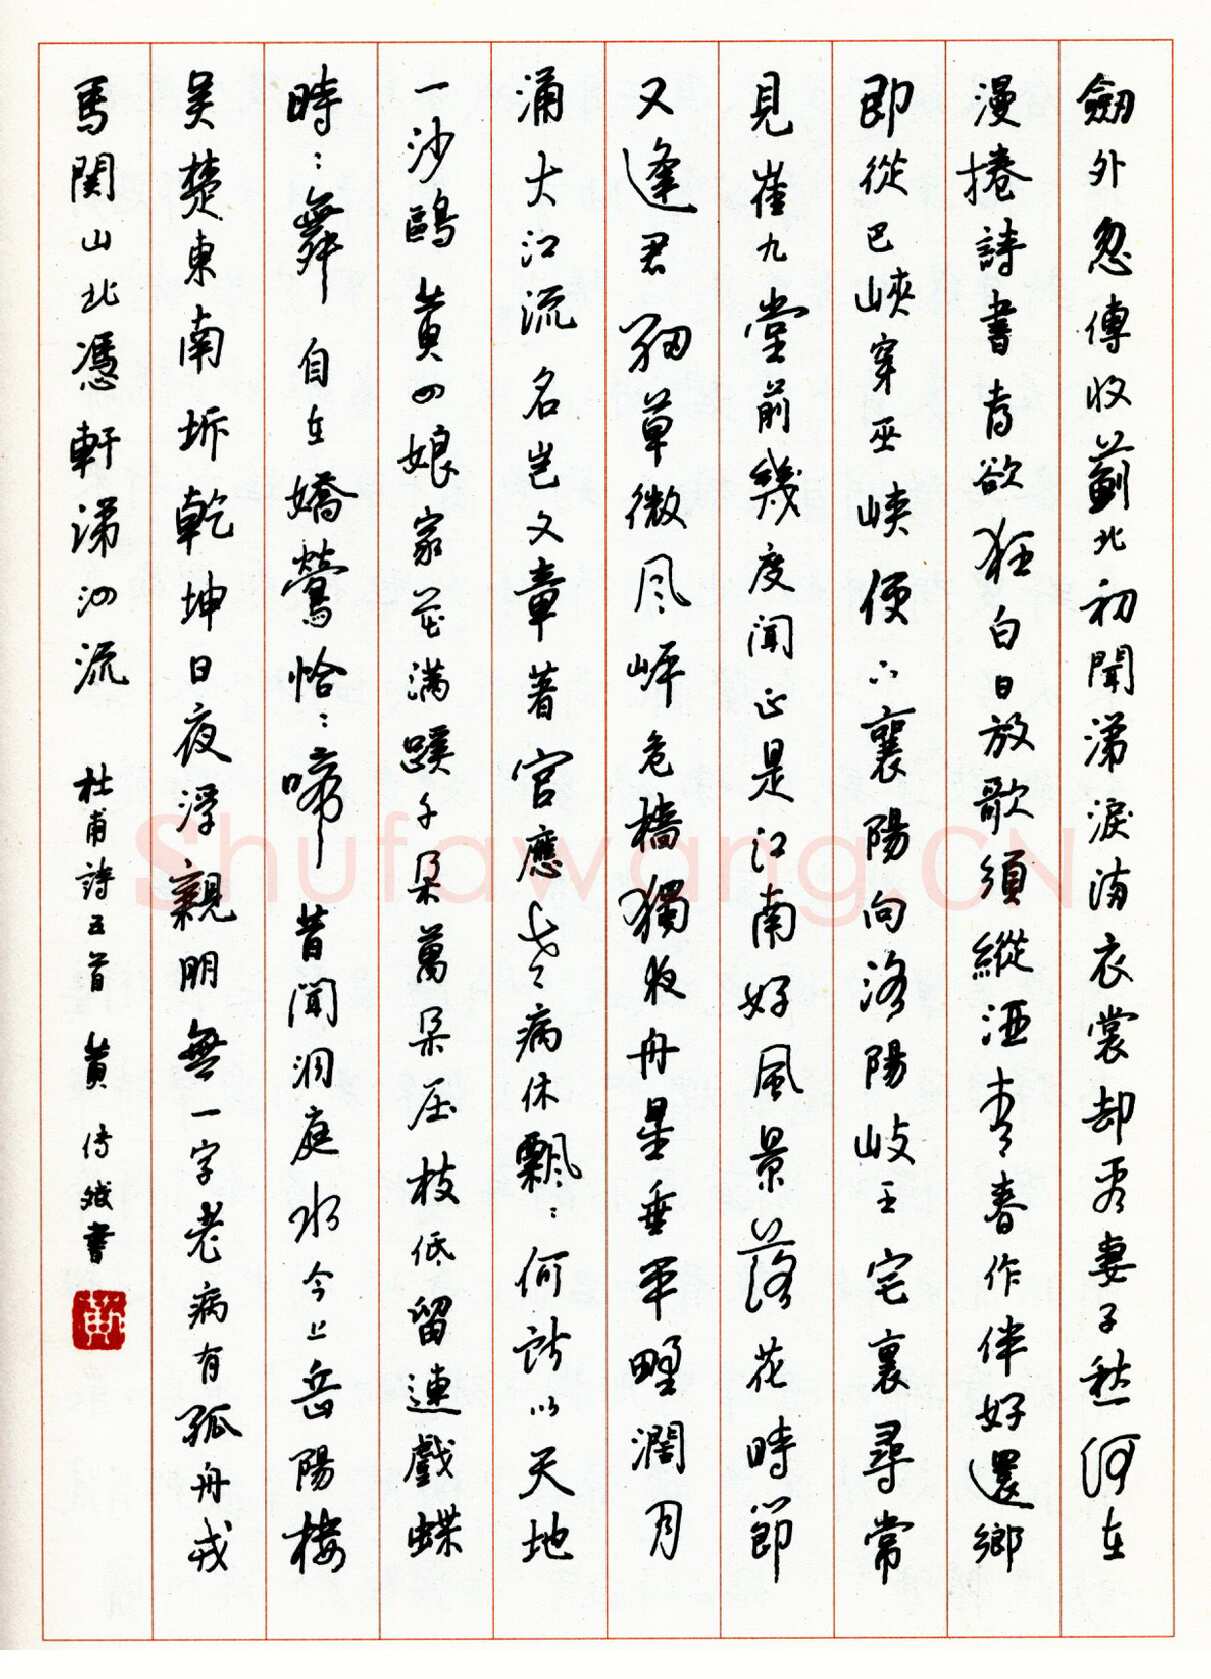 劒外忽傳收薊北初聞涕淚滿衣裳却看妻子愁何在
漫捲詩書喜欲狂白日放歌須縱酒青春作伴好還鄉
即從巴峽穿巫峽便下襄陽向洛陽岐王宅裏尋常
見崔九堂前幾度聞正是江南好風景落花時節
又逢君細草微風岸危檣獨夜舟星垂平野闊月
涌大江流名豈文章著官應老病休飄〻何所以天地
一沙鷗黃四娘家花滿蹊千朵萬朵压枝低留連戲蝶
時〻舞自在嬌鶯恰〻啼昔聞洞庭水今上岳陽樓
吳楚東南坼乾坤日夜浮親朋無一字老病有孤舟戎
馬関山北憑軒涕泗流 杜甫詩五首 黃 書
Shufawang.CN